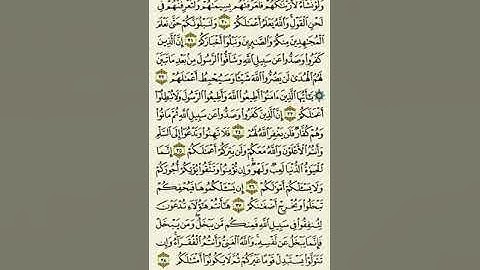 وَلَوْ نَشَآءُ لَأَرَيْنَٰكَهُمْ فَلَعَرَفْتَهُم بِسِيمَٰهُمْ وَلَتَعْرِفَنَّهُمْ فِى
لَحْنِ ٱلْقَوْلِ وَٱللَّهُ يَعْلَمُ أَعْمَٰلَكُمْ ٣٠ وَلَنَبْلُوَنَّكُمْ حَتَّىٰ نَعْلَمَ
ٱلْمُجَٰهِدِينَ مِنكُمْ وَٱلصَّٰبِرِينَ وَنَبْلُوَا۟ أَخْبَارَكُمْ ٣١ إِنَّ ٱلَّذِينَ
كَفَرُوا۟ وَصَدُّوا۟ عَن سَبِيلِ ٱللَّهِ وَشَآقُّوا۟ ٱلرَّسُولَ مِنۢ بَعْدِ مَا تَبَيَّنَ
لَهُمُ ٱلْهُدَىٰ لَن يَضُرُّوا۟ ٱللَّهَ شَيْـًٔا وَسَيُحْبِطُ أَعْمَٰلَهُمْ ٣٢
۞ يَٰٓأَيُّهَا ٱلَّذِينَ ءَامَنُوٓا۟ أَطِيعُوا۟ ٱللَّهَ وَأَطِيعُوا۟ ٱلرَّسُولَ وَلَا تُبْطِلُوٓا۟
أَعْمَٰلَكُمْ ٣٣ إِنَّ ٱلَّذِينَ كَفَرُوا۟ وَصَدُّوا۟ عَن سَبِيلِ ٱللَّهِ ثُمَّ مَاتُوا۟
وَهُمْ كُفَّارٌ فَلَن يَغْفِرَ ٱللَّهُ لَهُمْ ٣٤ فَلَا تَهِنُوا۟ وَتَدْعُوٓا۟ إِلَى ٱلسَّلْمِ
وَأَنتُمُ ٱلْأَعْلَوْنَ وَٱللَّهُ مَعَكُمْ وَلَن يَتِرَكُمْ أَعْمَٰلَكُمْ ٣٥ إِنَّمَا
ٱلْحَيَوٰةُ ٱلدُّنْيَا لَعِبٌ وَلَهْوٌ وَإِن تُؤْمِنُوا۟ وَتَتَّقُوا۟ يُؤْتِكُمْ أُجُورَكُمْ
وَلَا يَسْـَٔلْكُمْ أَمْوَٰلَكُمْ ٣٦ إِن يَسْـَٔلْكُمُوهَا فَيُحْفِكُمْ
تَبْخَلُوا۟ وَيُخْرِجْ أَضْغَٰنَكُمْ ٣٧ هَٰٓأَنتُمْ هَٰٓؤُلَآءِ تُدْعَوْنَ
لِتُنفِقُوا۟ فِى سَبِيلِ ٱللَّهِ فَمِنكُم مَّن يَبْخَلُ وَمَن يَبْخَلْ
فَإِنَّمَا يَبْخَلُ عَن نَّفْسِهِۦ وَٱللَّهُ ٱلْغَنِىُّ وَأَنتُمُ ٱلْفُقَرَآءُ وَإِن
تَتَوَلَّوْا۟ يَسْتَبْدِلْ قَوْمًا غَيْرَكُمْ ثُمَّ لَا يَكُونُوٓا۟ أَمْثَٰلَكُم ٣٨